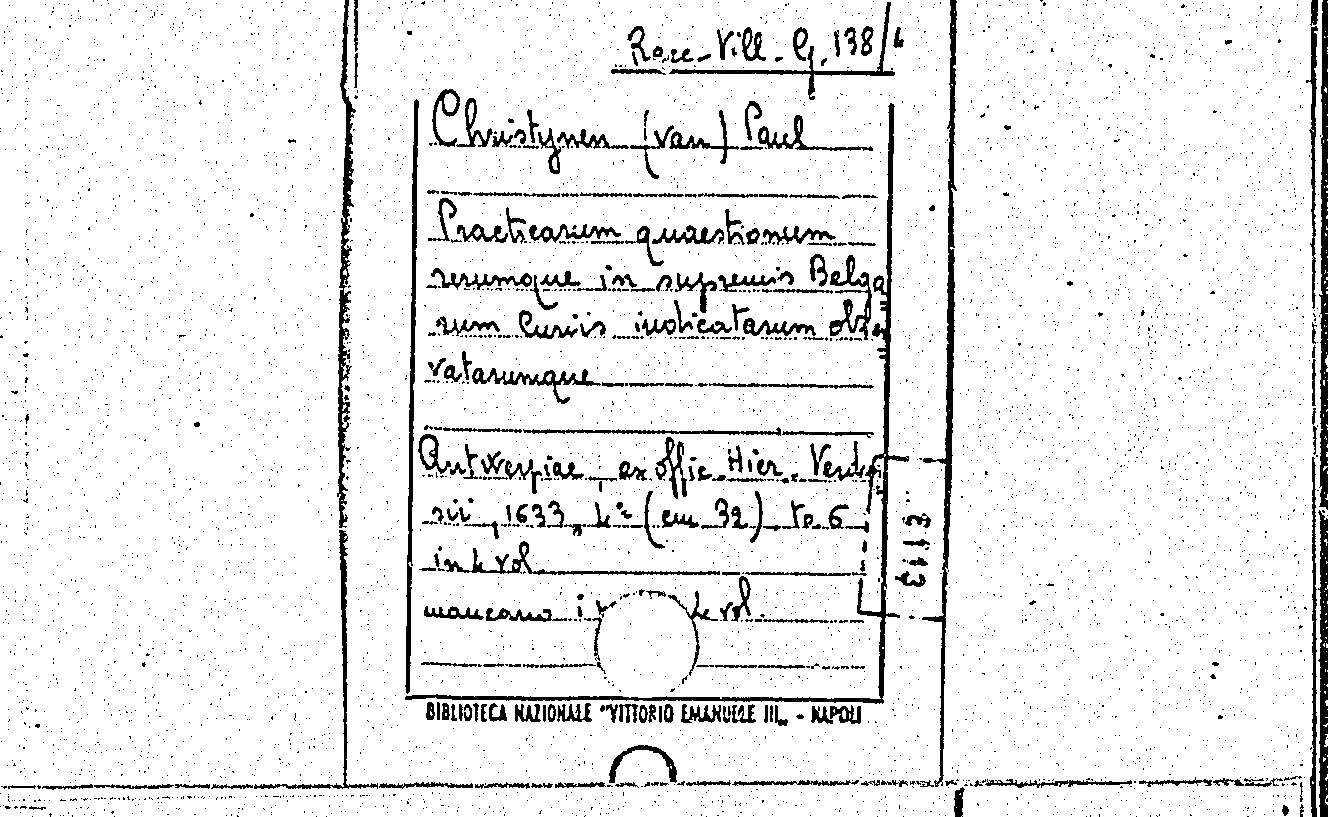 Racc. Vill. G. 138/4
Christynen (van) Paul
Practicarum quaestionum
rerumque in supremis Belga
rum Curiis iudicatarum obser
vatarumque
Antwerpiae, ex offic. Hier. Verdus
sii, 1633, 4° (cm 32). to 6
in 4 vol.
mancano i 4 vol.
3113
BIBLIOTECA NAZIONALE "VITTORIO EMANUELE III" - NAPOLI